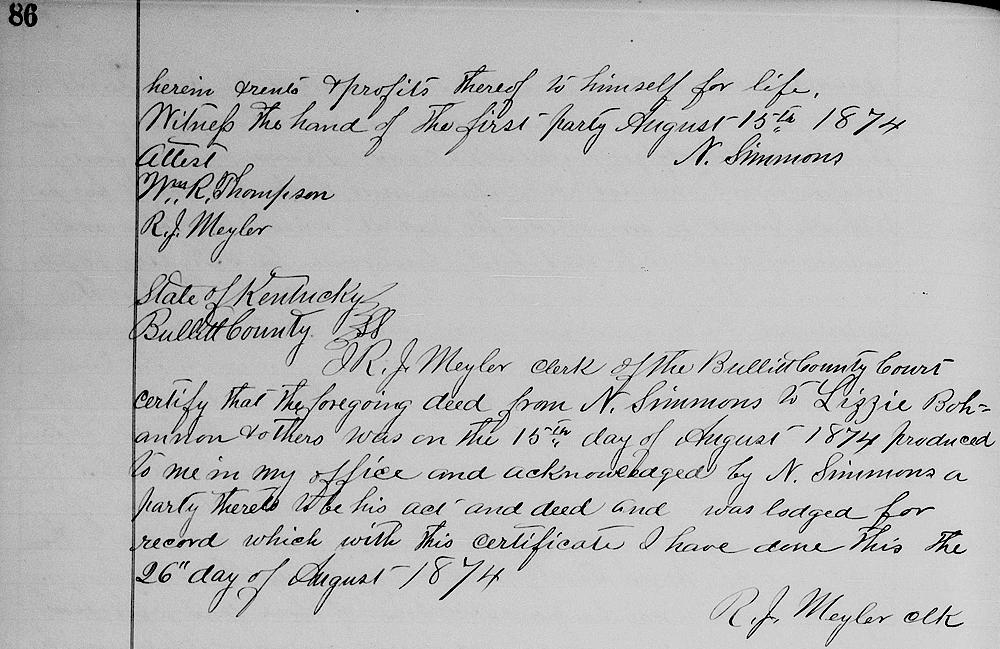 86
herein & rents & profits thereof to himself for life.
Witness the hand of the first party August 15th 1874
Attest N. Simmons
Wm. R. Thompson
R. J. Meyler
State of Kentucky
Bullitt County SS
I R. J. Meyler clerk of the Bullitt County Court
certify that the foregoing deed from N. Simmons to Lizzie Boh=
annon & others was on the 15th day of August 1874 produced
to me in my office and acknowledged by N. Simmons a
party thereto to be his act and deed and was lodged for
record which with this certificate I have done this the
26" day of August 1874
R. J. Meyler clk